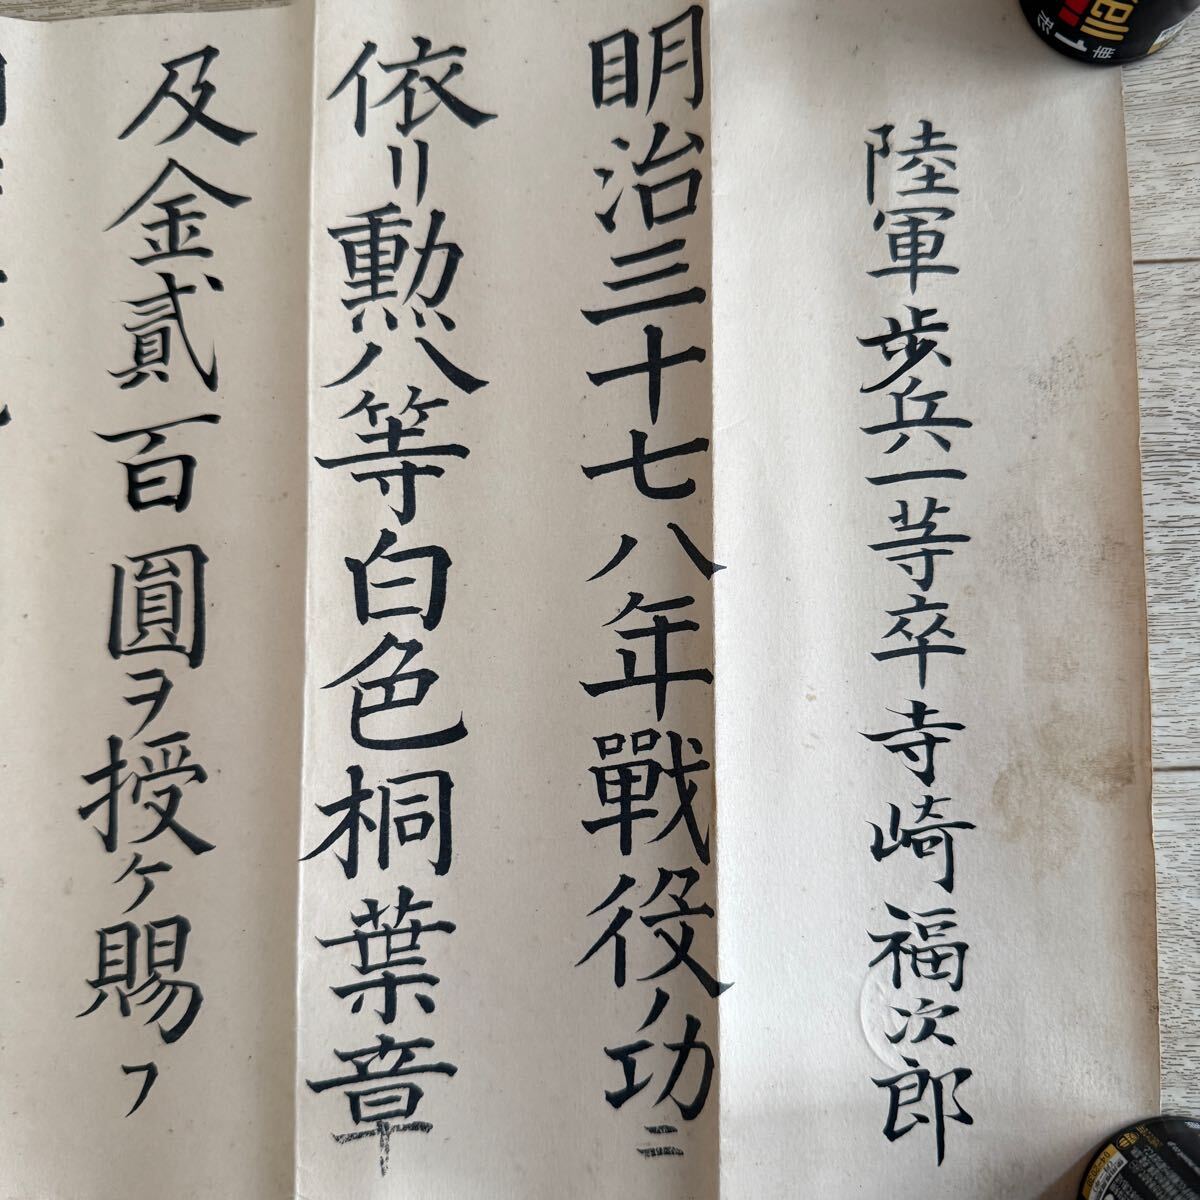 陸軍歩兵一等卒寺崎福次郎
明治三十七八年戰役ノ功ニ
依リ勲八等白色桐葉章
及金貳百圓ヲ授ケ賜フ